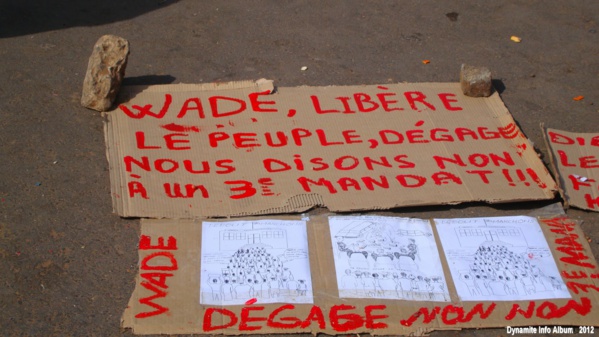 WADE, LIBÈRE
LE PEUPLE, DÉGAGE
NOUS DISONS NON
À UN 3E MANDAT!!!
DIE
LE
WADE
DÉGAGE NON NON
3E MAN
Dynamite Info Album 2012